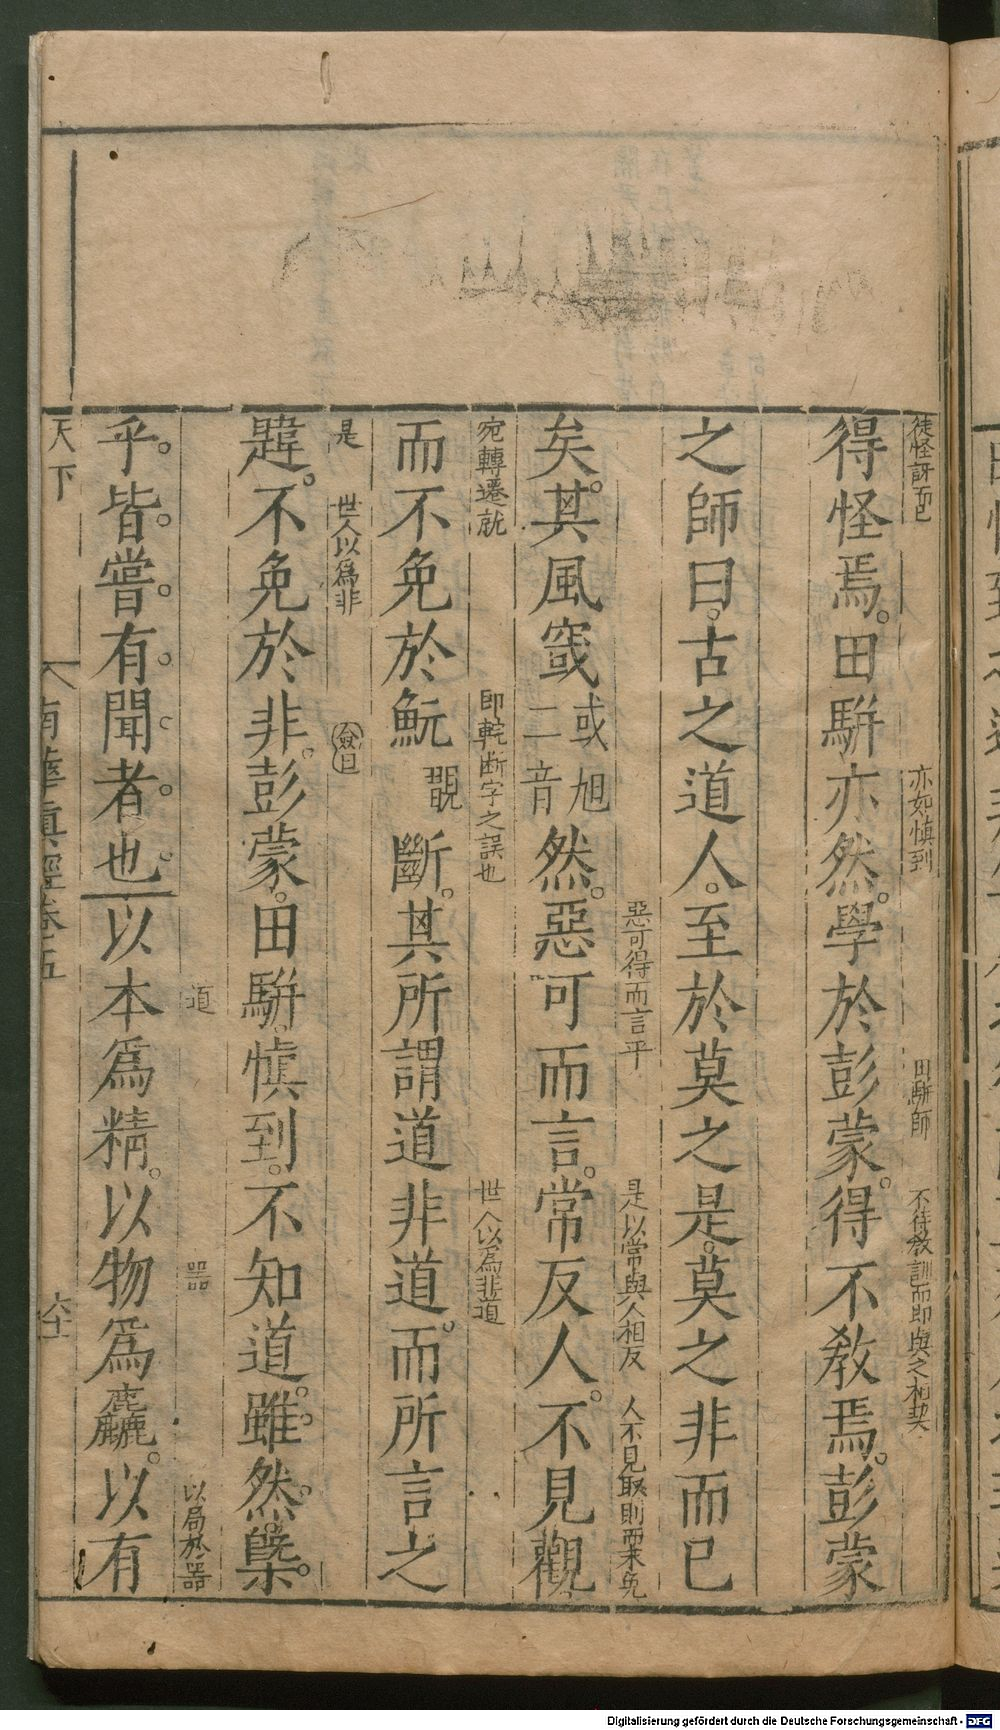 徒怪訝而已
亦如慎到
田駢師
不待敎訓而即與之相契
得怪焉。田駢亦然。學於彭蒙。得不敎焉。彭蒙
之師曰。古之道人。至於莫之是。莫之非而已
惡可得而言乎
是以常與人相反
人不見取則而未免
矣。其風窢或旭二音然。惡可而言。常反人。不見觀
宛轉遷就
即輐断字之誤也
世人以爲非道
而不免於魭斷。其所謂道非道。而所言之
是
世人以爲非
僉曰
韙。不免於非。彭蒙。田駢。慎到。不知道。雖然。槩。
道
器
以局於器
乎。皆。嘗。有。聞。者。也。以本爲精。以物爲麤。以有
天下
南華眞經卷五
Digitalisierung gefördert durch die Deutsche Forschungsgemeinschaft - DFG